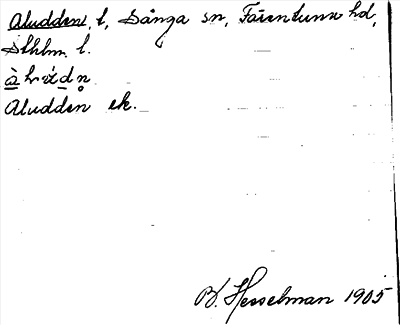 Aludden, l, Sånga sn, Färentuna hd,
Sthlm l.
Aludden ek.
B. Hesselman 1905